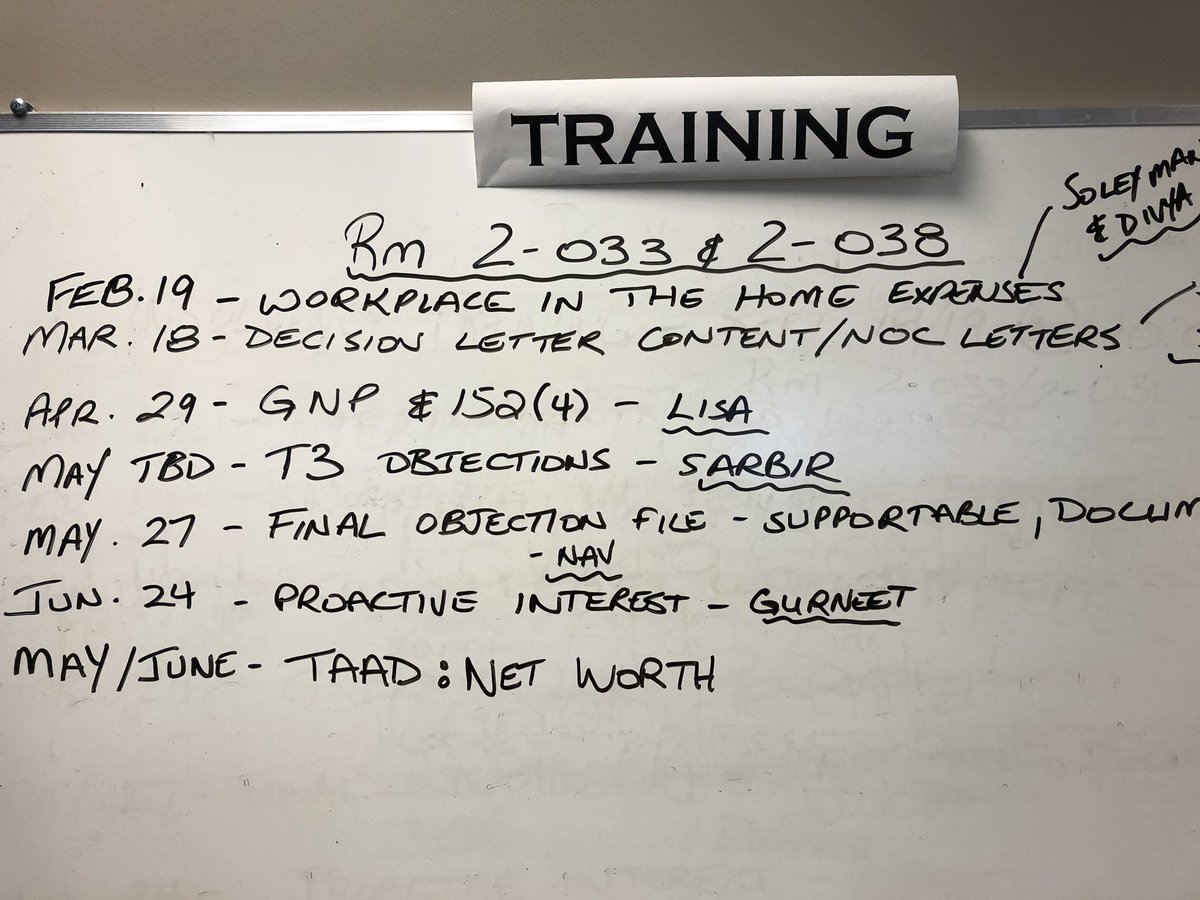 TRAINING
SOLEYMAN
& DIVYA
Rm 2-033 & 2-038
FEB. 19 - WORKPLACE IN THE HOME EXPENSES
MAR. 18 - DECISION LETTER CONTENT/NOC LETTERS
APR. 29 - GNP & 152(4) - LISA
MAY TBD - T3 OBJECTIONS - SARBIR
MAY. 27 - FINAL OBJECTION FILE - SUPPORTABLE, DOCUM
- NAV
JUN. 24 - PROACTIVE INTEREST - GURNEET
MAY/JUNE - TAAD: NET WORTH